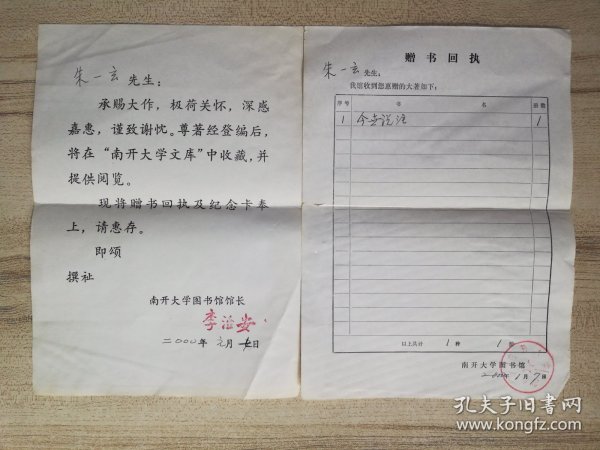 朱一玄 先生：
承赐大作，极荷关怀，深感
嘉惠，谨致谢忱。尊著经登编后，
将在“南开大学文库”中收藏，并
提供阅览。
现将赠书回执及纪念卡奉
上，请惠存。
即颂
撰祉
南开大学图书馆馆长
李治安
二000年元月七日
赠书回执
朱一玄 先生：
我馆收到您惠赠的大著如下：
序号 书名 册数
1 今世说注 1
以上共计 1 种 1
南开大学图书馆
二000年1月7日
孔夫子旧书网
www.kongfz.com